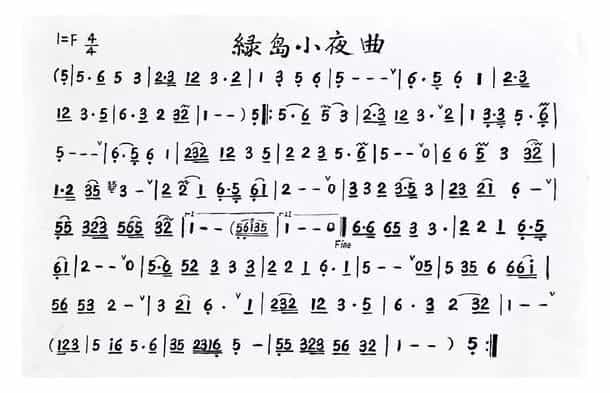 1=F 4/4 緑岛小夜曲
(5|5·6 5 3|2·3 12 3·2|1 3 5 6|5---ˇ|6·5 6 1|2·3
12 3·5|6·3 2 32|1--) 5‖:5·6 5 3|2·3 12 3·ˇ2|1 3·3 5·6|
5---ˇ|6·5 6 1|232 12 3 5|2 2 3 5·6|5--ˇ0|6 6 5 3 32|
1·2 35 3-ˇ|2 2 1 6·5 61|2--ˇ0|3 3 2 3·5 3|23 21 6-ˇ|
55 323 565 32|1--(56i35|1--0‖6·6 65 3 3·|2 2 1 6·5
Fine
61|2--ˇ0|5·6 52 3 3 3|2 2 1 6·1|5--ˇ05|5 35 6 66i|
56 53 2-ˇ|3 21 6·ˇ1|232 12 3·5|6·3 2 32|1--ˇ
(123|5 i6 5·6|35 2316 5-|55 323 56 32|1--) 5:‖